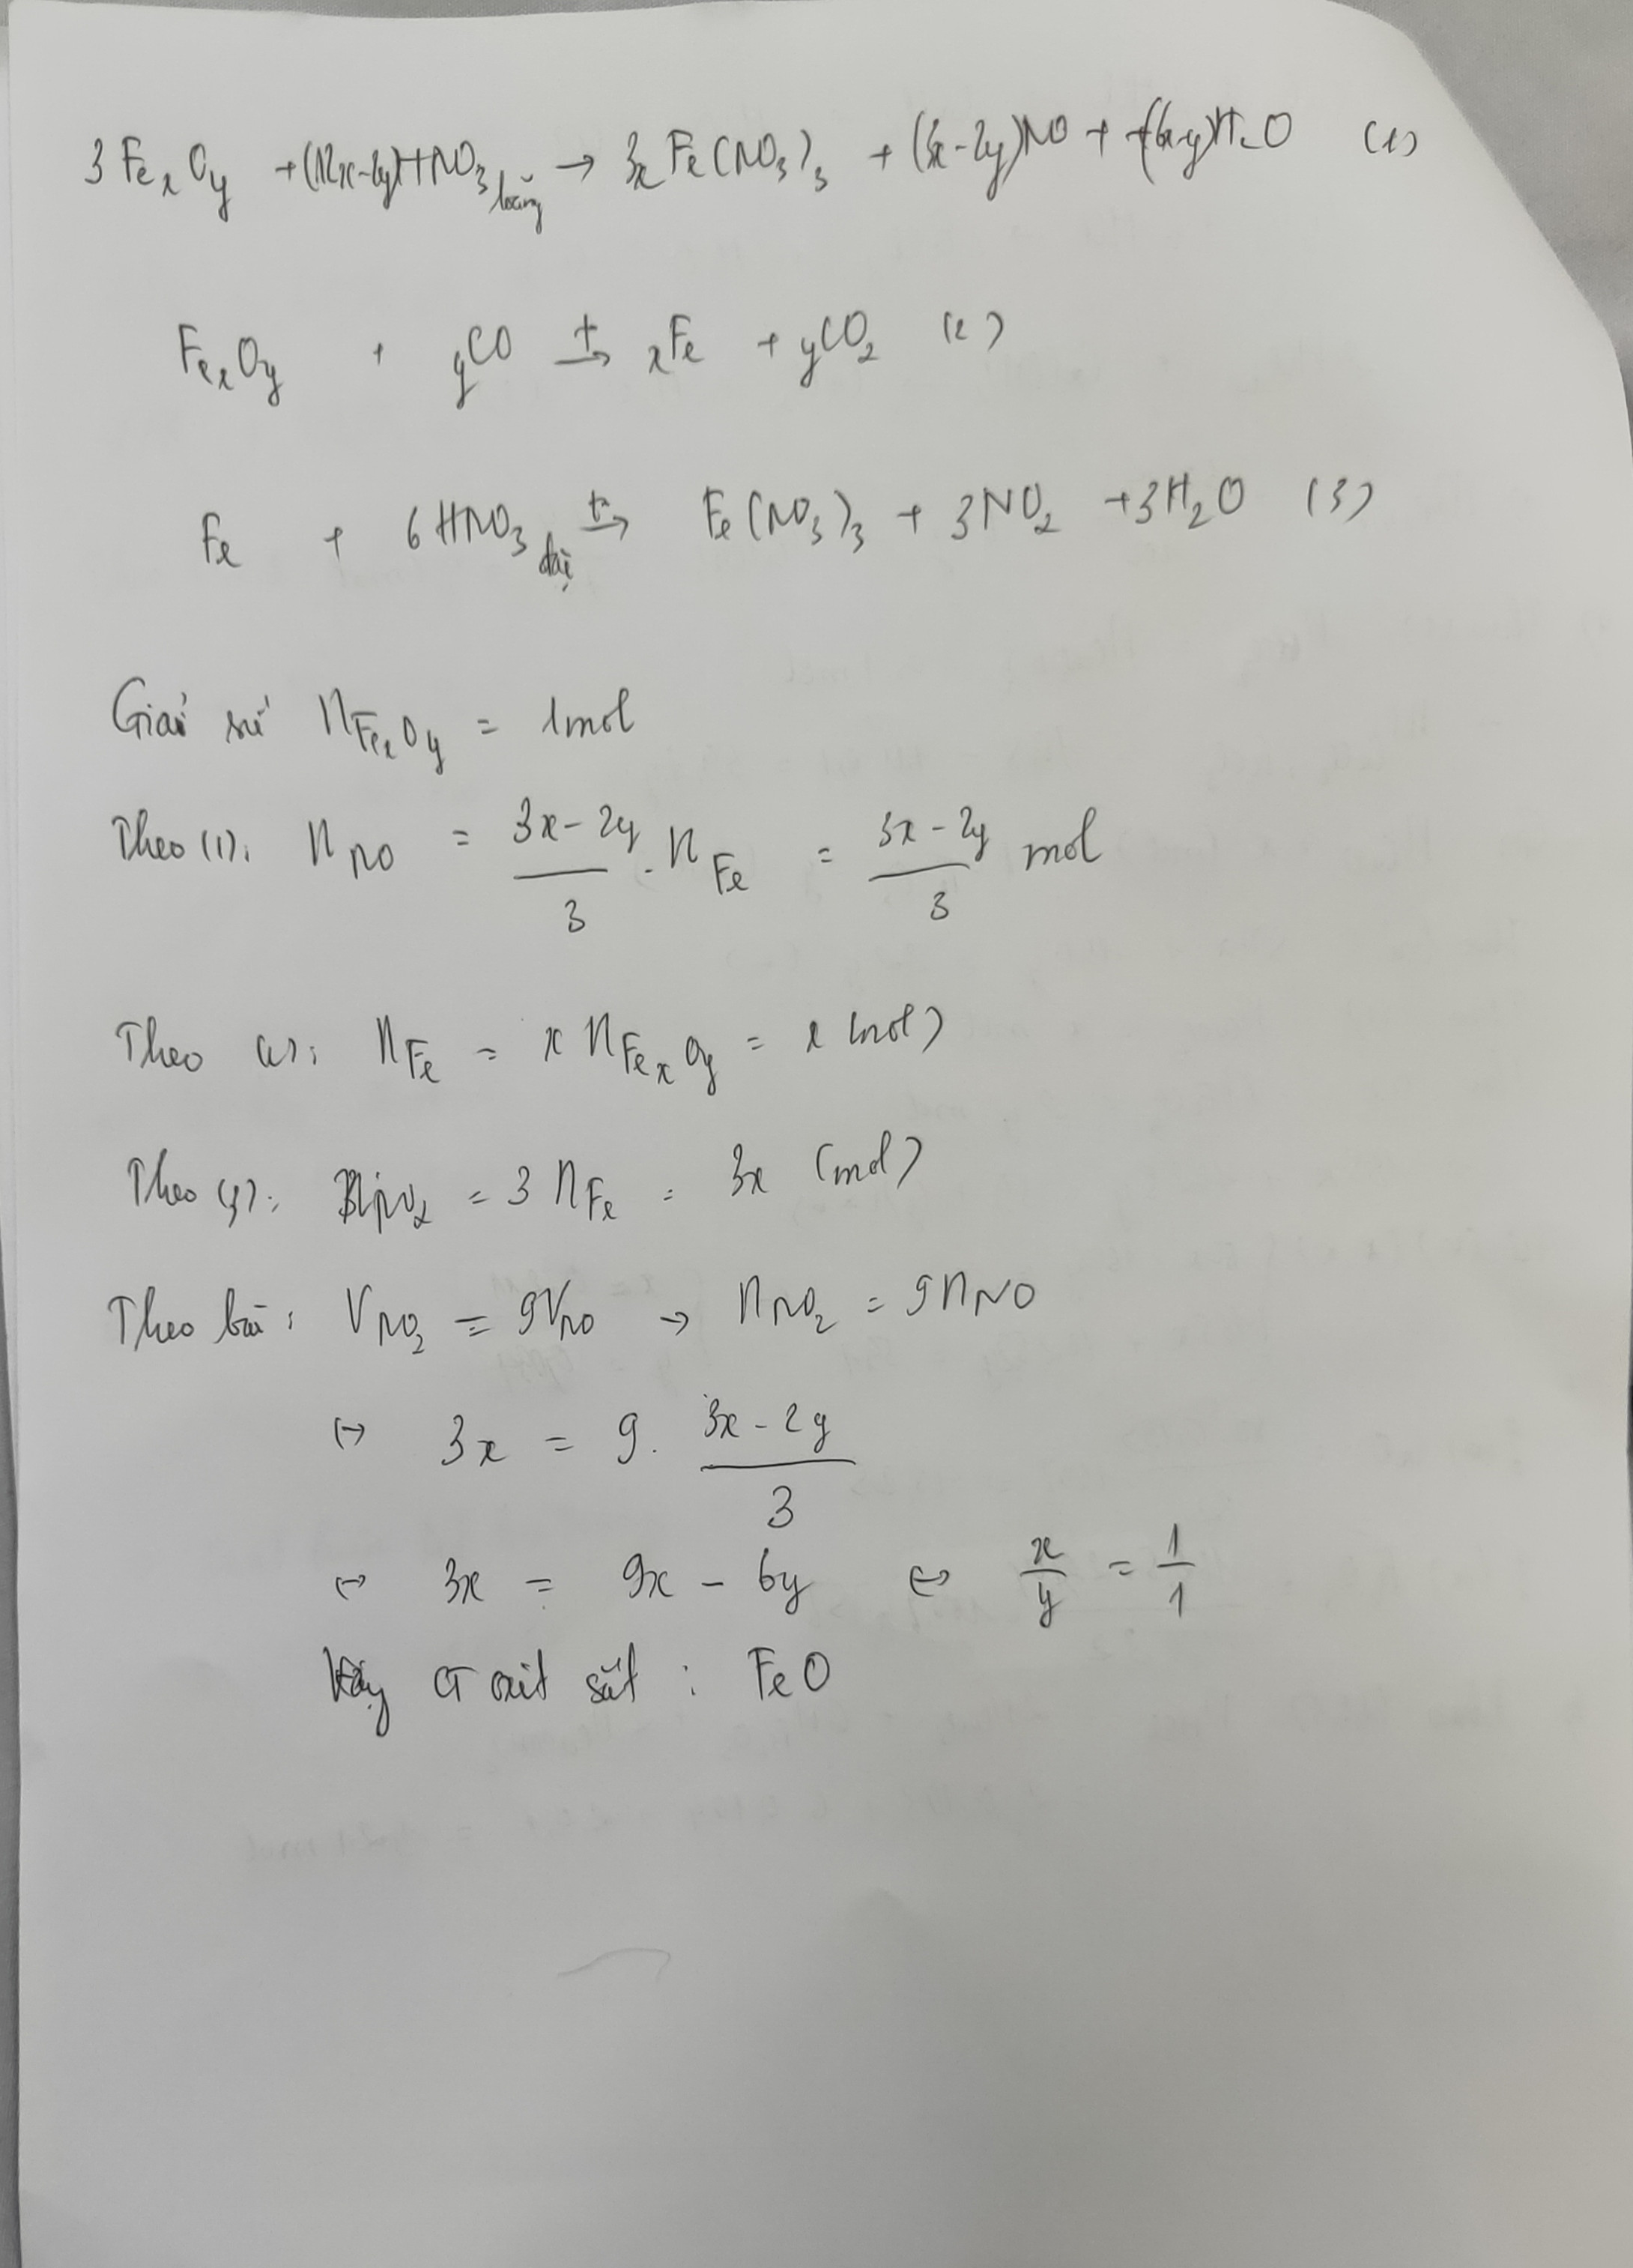 3FeₓOy + (12x-2y)HNO₃ loãng → 3x Fe(NO₃)₃ + (3x-2y)NO + (6x-y)H₂O (1)
FeₓOy + yCO t→ xFe + yCO₂ (2)
Fe + 6HNO₃ đặc t°→ Fe(NO₃)₃ + 3NO₂ + 3H₂O (3)
Giả sử nFeₓOy = 1mol
Theo (1): nNO = (3x-2y)/3 . nFe = (3x-2y)/3 mol
Theo (2): nFe = x nFeₓOy = x (mol)
Theo (3): nNO₂ = 3 nFe = 3x (mol)
Theo bài: VNO₂ = 9VNO → nNO₂ = 9nNO
↔ 3x = 9. (3x-2y)/3
↔ 3x = 9x - 6y ↔ x/y = 1/1
Vậy CT oxit sắt : FeO